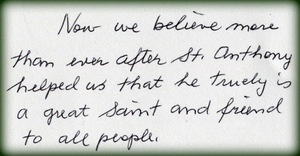 Now we believe more
than ever after St. Anthony
helped us that he truely is
a great Saint and friend
to all people.